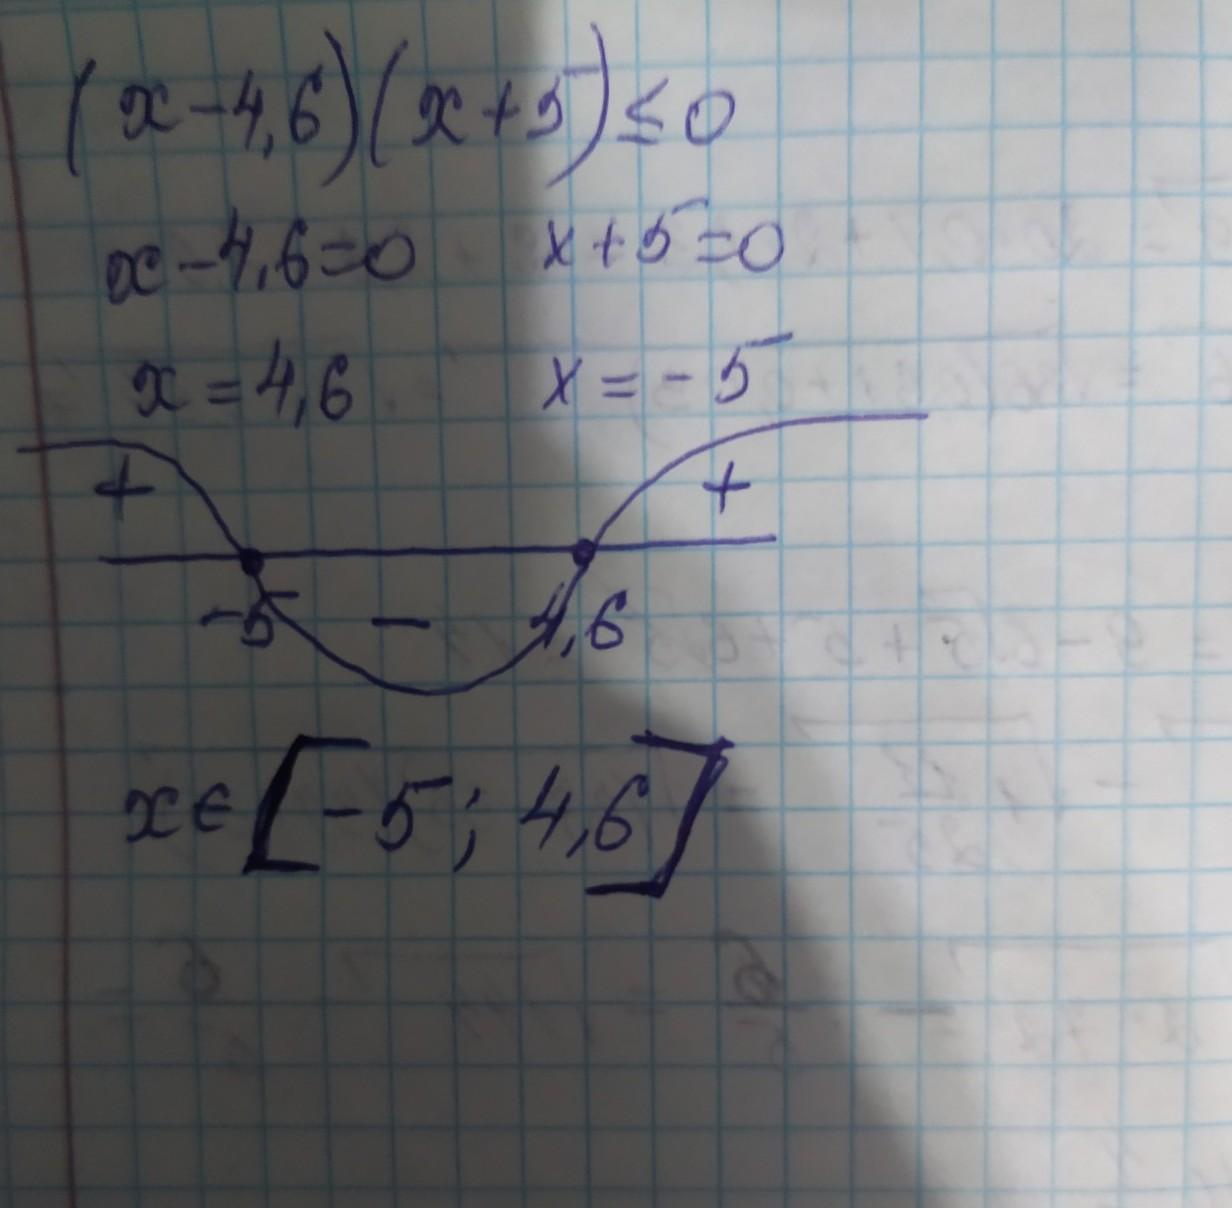 (x-4,6)(x+5)≤0
x-4,6=0 x+5=0
x=4,6 x=-5
+ +
-5 - 4,6
x∈[-5; 4,6]